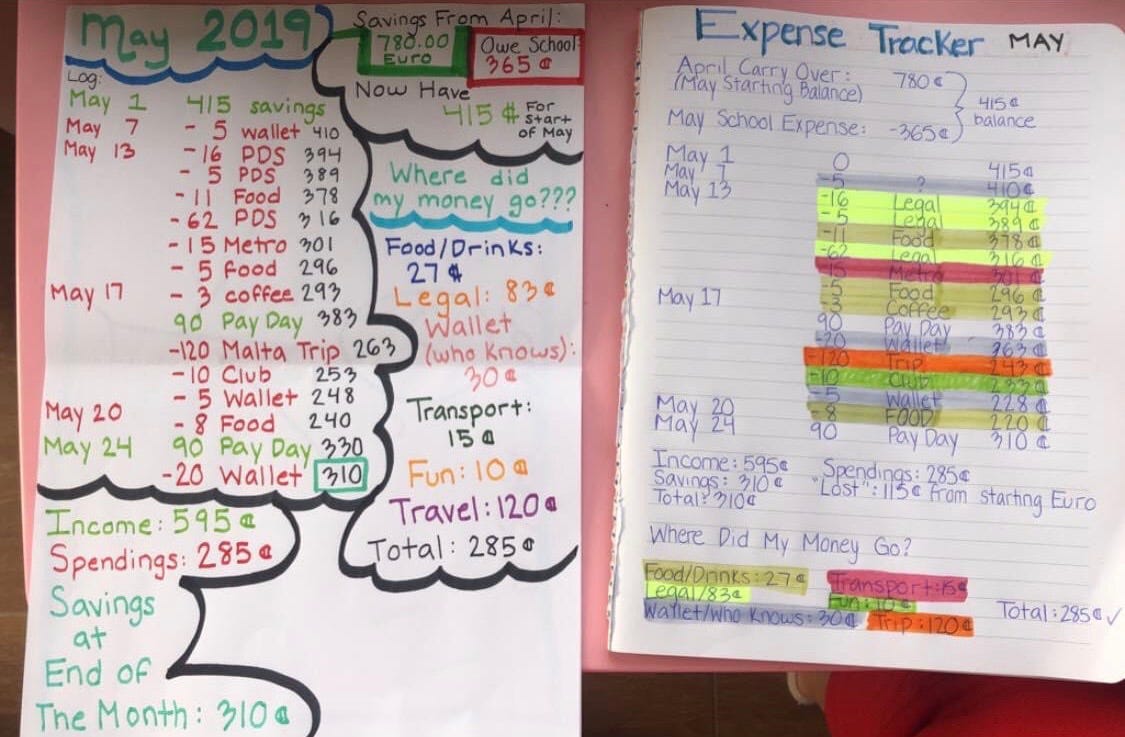 May 2019
Savings From April:
780.00
Euro
Owe School:
365 €
Now Have
415 €
For
start
of May
Log:
May 1 415 savings
May 7 - 5 wallet 410
May 13 -16 PDS 394
- 5 PDS 389
- 11 Food 378
- 62 PDS 316
- 15 Metro 301
- 5 food 296
May 17 - 3 coffee 293
90 Pay Day 383
-120 Malta Trip 263
- 10 Club 253
- 5 Wallet 248
May 20 - 8 Food 240
May 24 90 Pay Day 330
-20 Wallet 310
Income: 595 €
Spendings: 285 €
Savings
at
End of
The Month: 310 €
Where did
my money go???
Food/Drinks:
27 €
Legal: 83 €
Wallet
(who Knows):
30 €
Transport:
15 €
Fun: 10 €
Travel: 120 €
Total: 285 €
Expense Tracker MAY
April Carry Over: 780 €
(May Starting Balance)
415 €
balance
May School Expense: -365 €
May 1 0 415 €
May 7 -5 ? 410 €
May 13 -16 Legal 394 €
-5 Legal 389 €
-11 Food 378 €
-62 Legal 316 €
-15 Metro 301 €
-5 Food 296 €
May 17 -3 Coffee 293 €
90 Pay Day 383 €
-20 Wallet 363 €
-120 Trip 243 €
-10 Club 233 €
-5 Wallet 228 €
May 20 -8 FOOD 220 €
May 24 90 Pay Day 310 €
Income: 595 € Spendings: 285 €
Savings: 310 € "Lost": 115 € from starting Euro
Total: 310 €
Where Did My Money Go?
Food/Drinks: 27 € Transport: 15 €
Legal/83 € Fun: 10 €
Wallet/Who Knows: 30 € Trip: 120 € Total: 285 € ✓